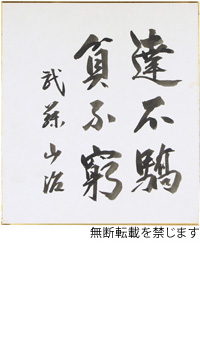 達不驕
貧不窮
武藤山治
無断転載を禁じます